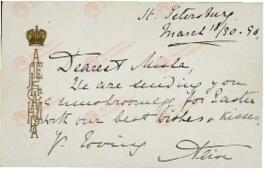 St. Petersburg.
March 18/30 - 90.
Dearest Missa,
We are sending you
a mushroomegg for Easter
with our best wishes & kisses.
Yr. loving
Alix